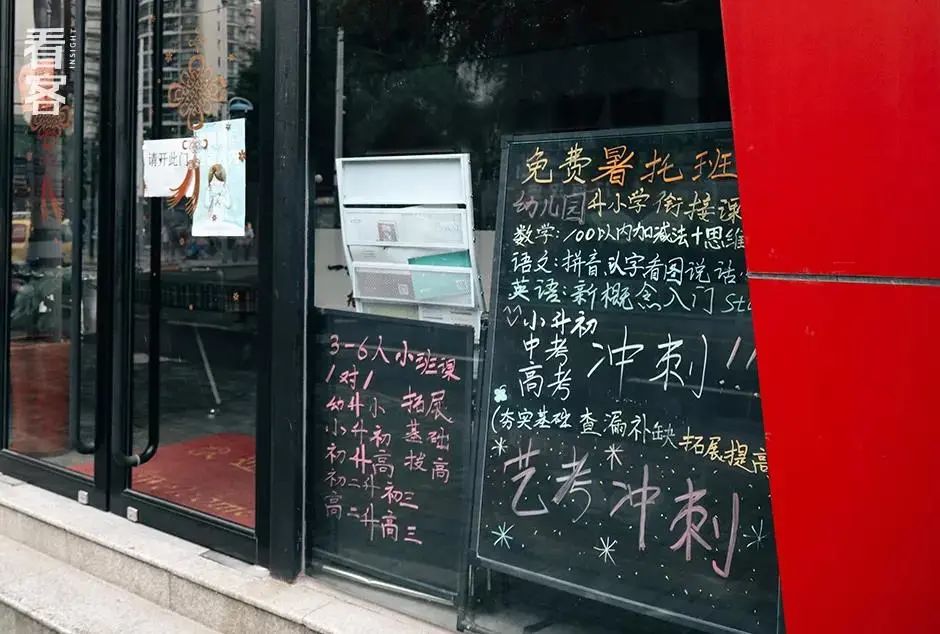 看客
INSIGHT
请开此门
免费暑托班
幼儿园升小学衔接课
数学:100以内加减法+思维
语文:拼音、认字看图说话
英语:新概念入门
小升初
中考
高考
冲刺!!!
(夯实基础 查漏补缺 拓展提高
艺考冲刺
3-6人小班课
1对1
幼升小
小升初
初升高
初二升初三
高二升高三
拓展
基础
拔高